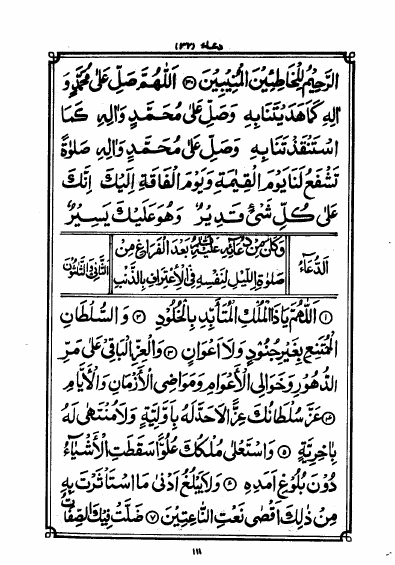 دعاء (٣٢)
الرَّحِيْمُ لِلْخَاطِئِيْنَ الْمُنِيْبِيْنَ ﴿٣٠﴾ اَللّٰهُمَّ صَلِّ عَلٰى مُحَمَّدٍ وَ
اٰلِهٖ كَمَا هَدَيْتَنَا بِهٖ وَصَلِّ عَلٰى مُحَمَّدٍ وَاٰلِهٖ كَمَا
اسْتَنْقَذْتَنَا بِهٖ وَصَلِّ عَلٰى مُحَمَّدٍ وَاٰلِهٖ صَلٰوةً
تَشْفَعُ لَنَا يَوْمَ الْقِيٰمَةِ وَيَوْمَ الْفَاقَةِ اِلَيْكَ اِنَّكَ
عَلٰى كُلِّ شَيْءٍ قَدِيْرٌ وَهُوَ عَلَيْكَ يَسِيْرٌ
اَلدُّعَاءُ
وَكَانَ مِنْ دُعَائِهٖ عَلَيْهِ السَّلَامُ بَعْدَ الْفَرَاغِ مِنْ
صَلٰوةِ اللَّيْلِ لِنَفْسِهٖ فِي الْاِعْتِرَافِ بِالذَّنْبِ
الثَّانِيْ وَالثَّلٰثُوْنَ
﴿١﴾ اَللّٰهُمَّ يَا ذَا الْمُلْكِ الْمُتَاَبِّدِ بِالْخُلُوْدِ ﴿٢﴾ وَالسُّلْطَانِ
الْمُمْتَنِعِ بِغَيْرِ جُنُوْدٍ وَلَا اَعْوَانٍ ﴿٣﴾ وَالْعِزِّ الْبَاقِيْ عَلٰى مَرِّ
الدُّهُوْرِ وَخَوَالِي الْاَعْوَامِ وَمَوَاضِي الْاَزْمَانِ وَالْاَيَّامِ
﴿٤﴾ عَزَّ سُلْطَانُكَ عِزًّا لَا حَدَّ لَهٗ بِاَوَّلِيَّةٍ وَلَا مُنْتَهٰى لَهٗ
بِاٰخِرِيَّةٍ ﴿٥﴾ وَاسْتَعْلٰى مُلْكُكَ عُلُوًّا سَقَطَتِ الْاَشْيَاءُ
دُوْنَ بُلُوْغِ اَمَدِهٖ ﴿٦﴾ وَلَا يَبْلُغُ اَدْنٰى مَا اسْتَاْثَرْتَ بِهٖ
مِنْ ذٰلِكَ اَقْصٰى نَعْتِ النَّاعِتِيْنَ ﴿٧﴾ ضَلَّتْ فِيْكَ الصِّفَاتُ